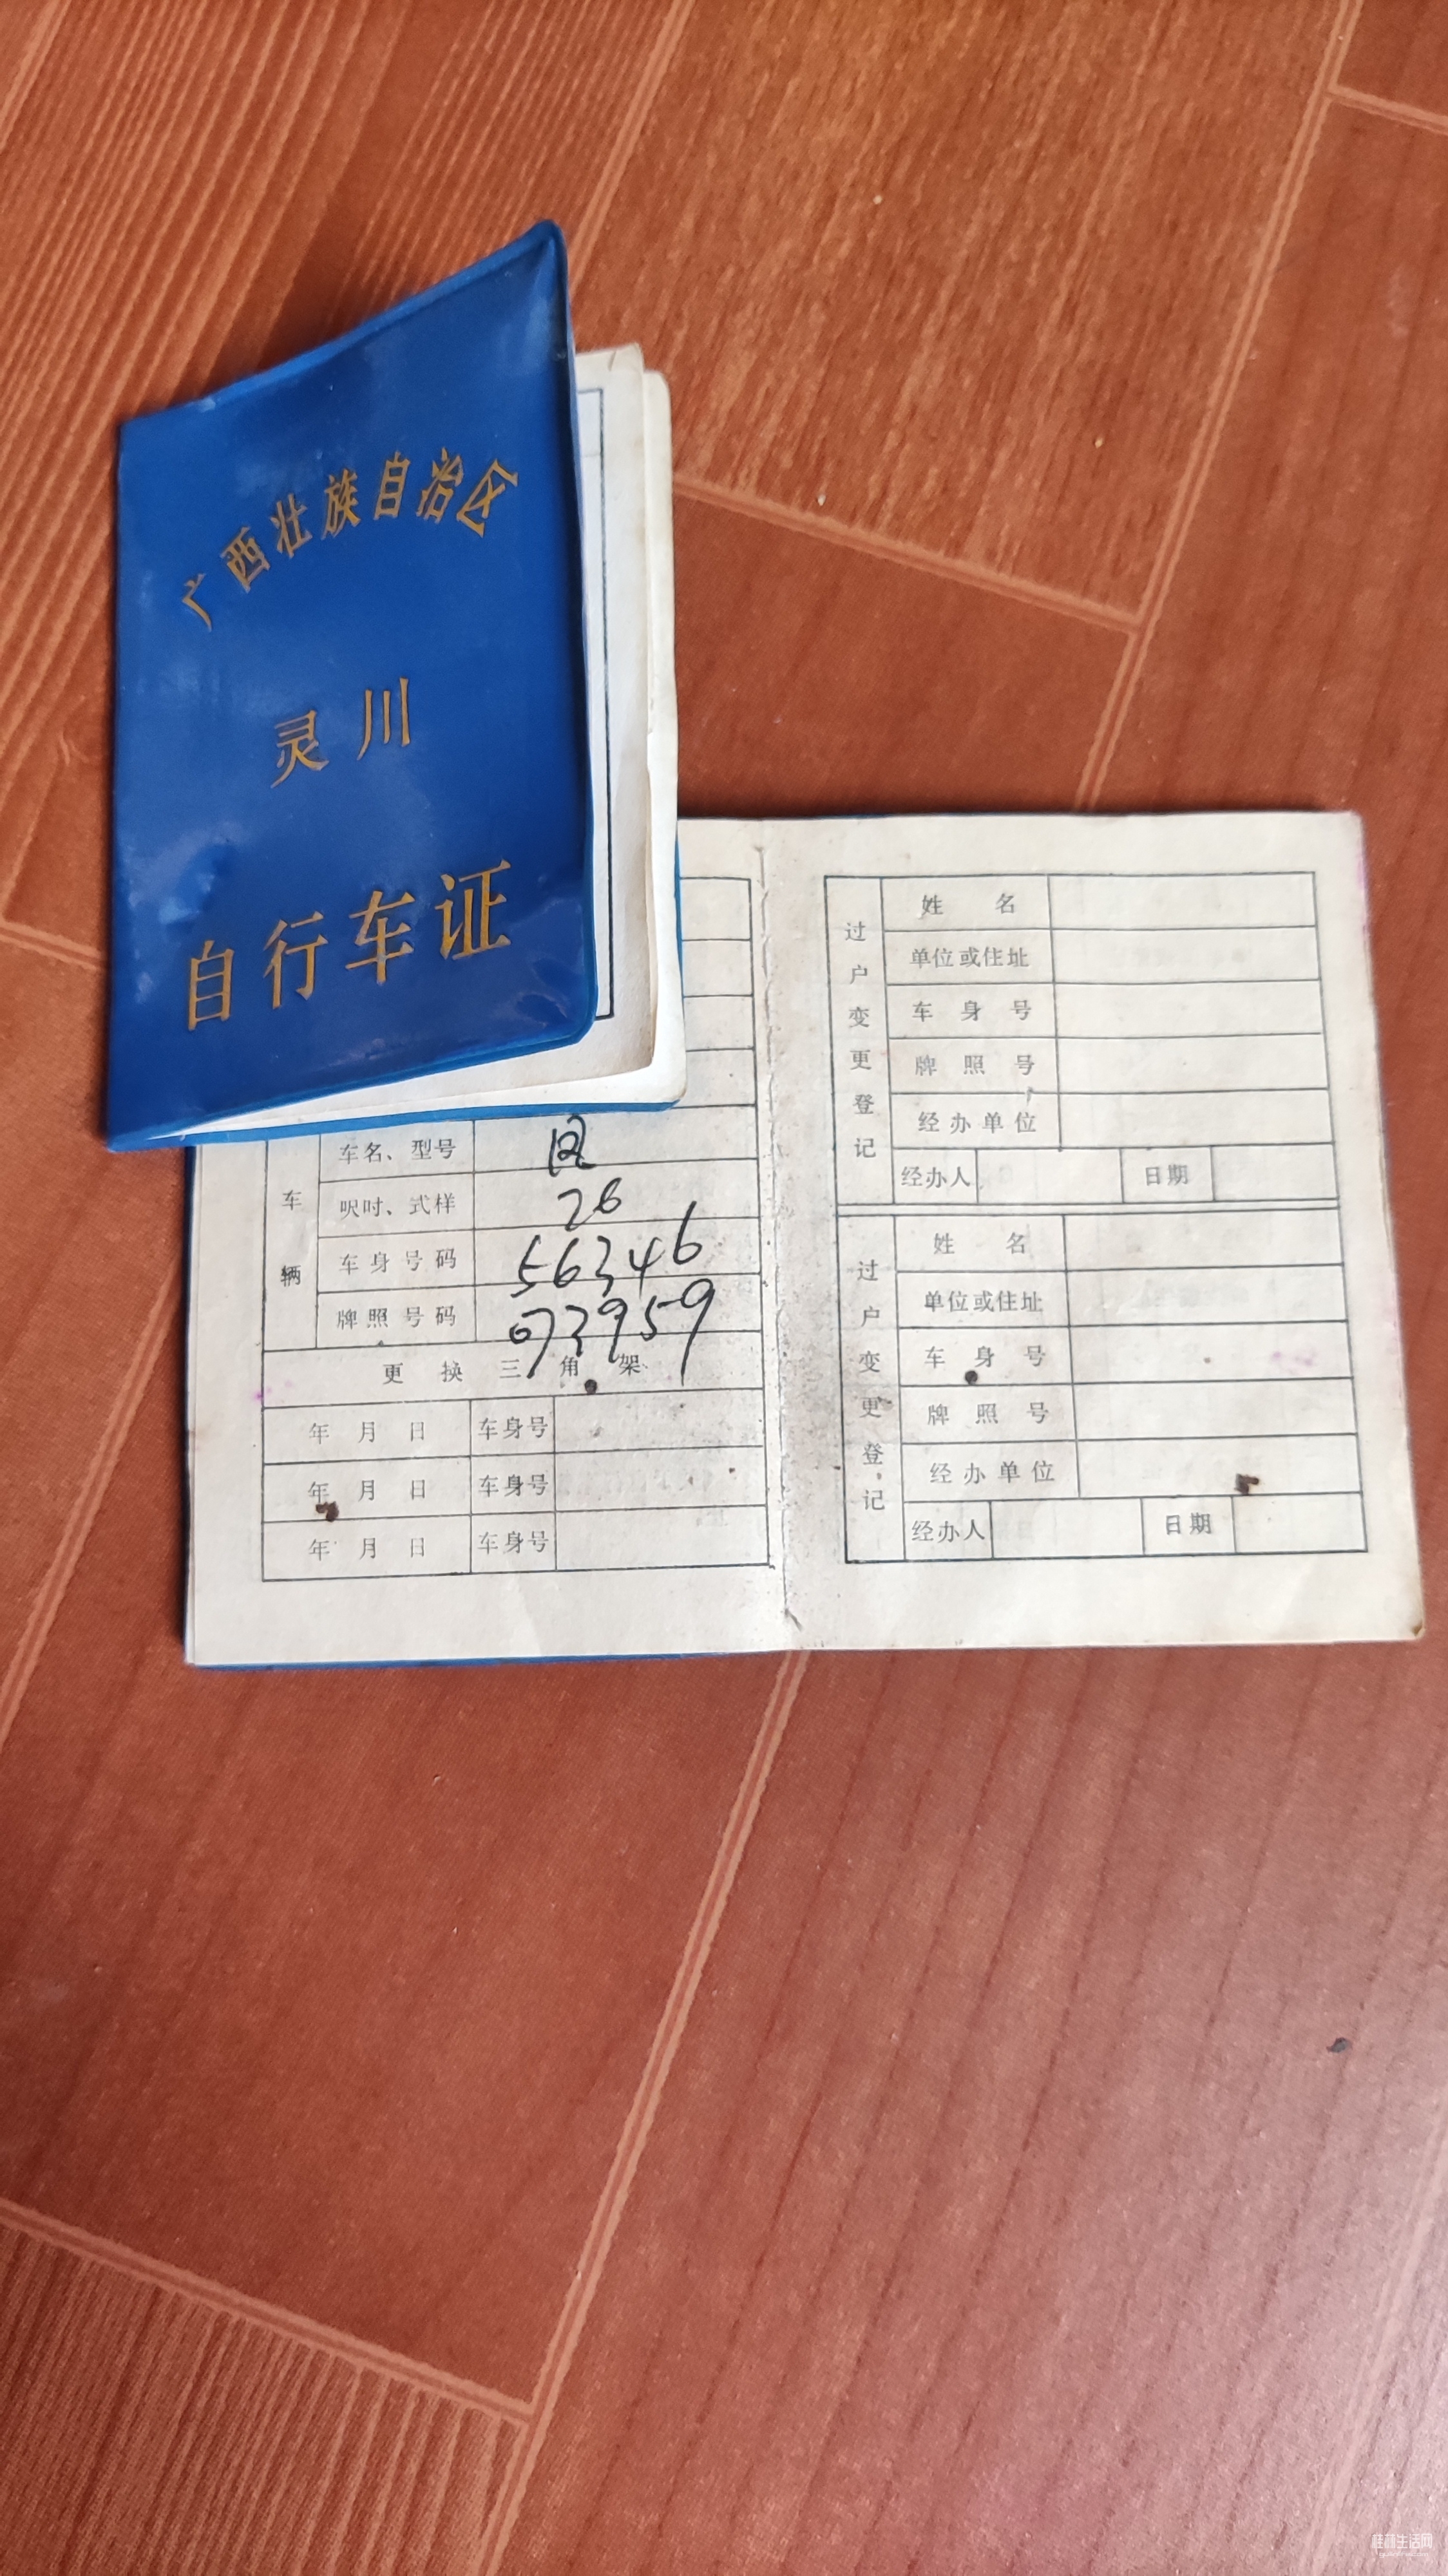 广西壮族自治区
灵川
自行车证
车辆
车名、型号 凤
呎吋、式样 26
车身号码 56346
牌照号码 073959
更换三角架
年 月 日 车身号
年 月 日 车身号
年 月 日 车身号
过户变更登记
姓 名
单位或住址
车身号
牌照号
经办单位
经办人 日期
过户变更登记
姓 名
单位或住址
车身号
牌照号
经办单位
经办人 日期
桂林生活网